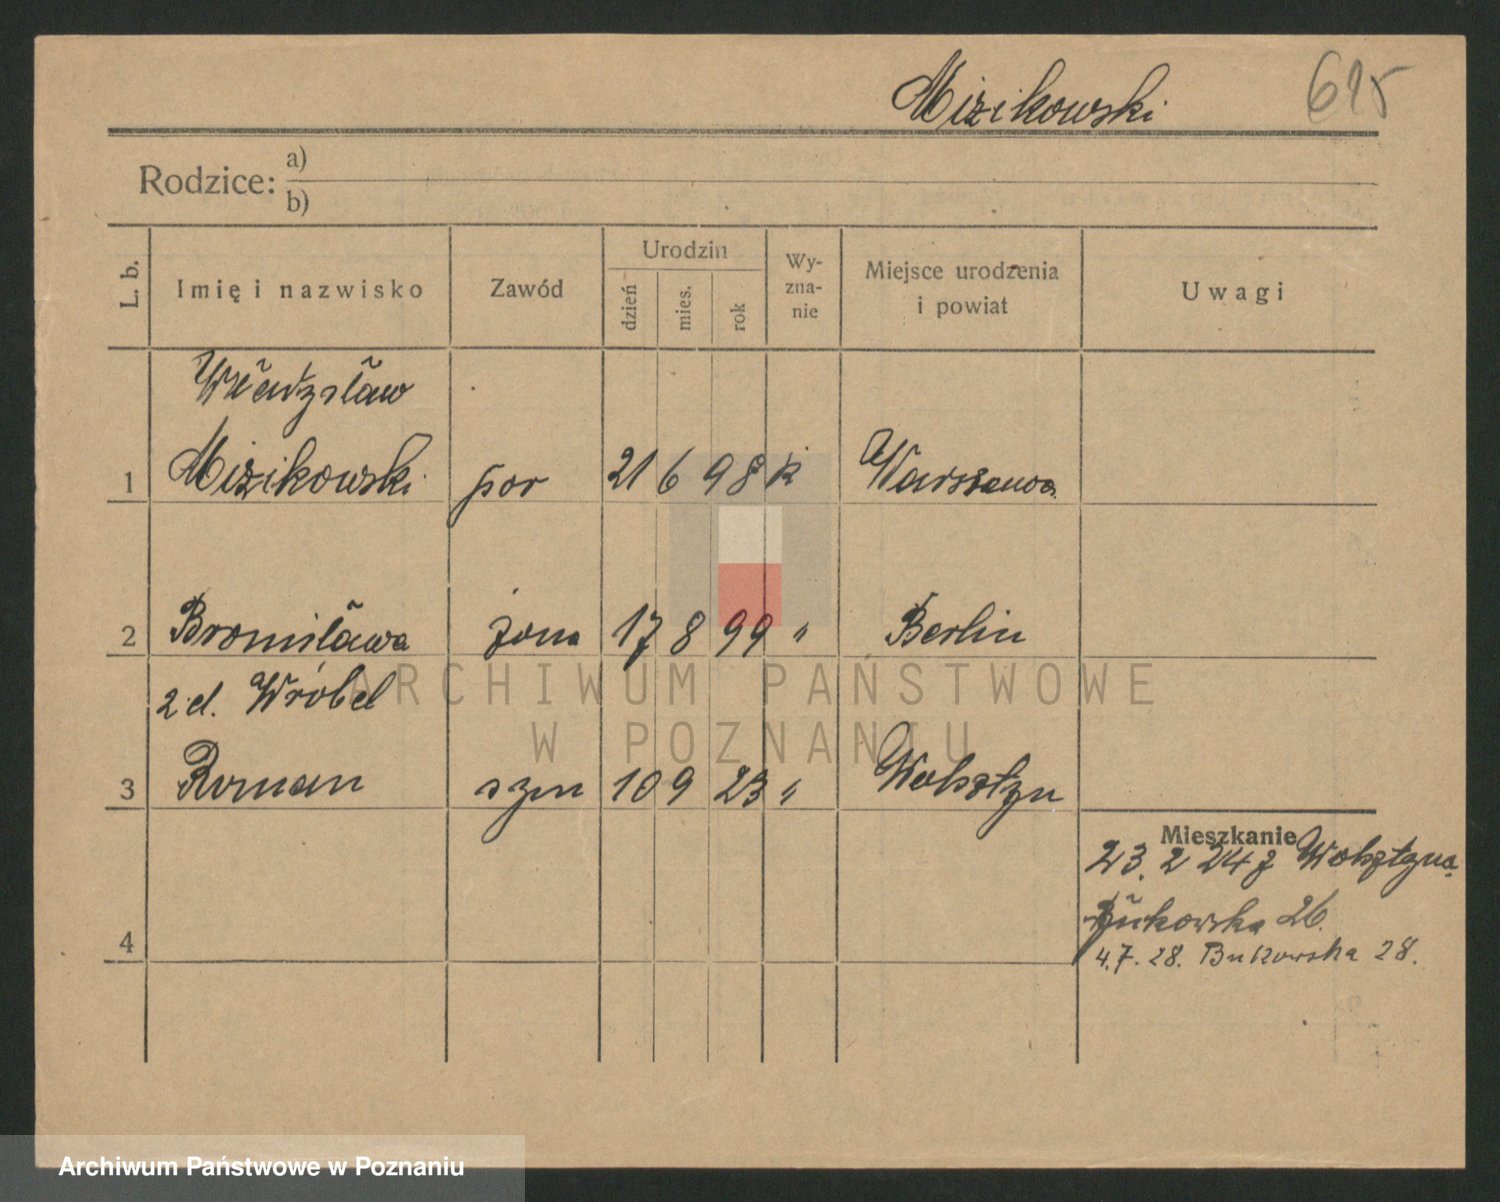 Miżikowski 615
Rodzice: a)
b)
L. b. Imię i nazwisko Zawód Urodzin dzień mies. rok Wy-zna-nie Miejsce urodzenia i powiat Uwagi
Władysław
1 Miżikowski por 21 6 98 k Warszawa
2 Bronisława żona 17 8 99 " Berlin
z d. Wróbel
3 Roman syn 10 9 23 " Wolsztyn
Mieszkanie
23. 2 24 z Wolsztyna
Bukowska 26.
4
4.7.28. Bukowska 28.
ARCHIWUM PAŃSTWOWE
W POZNANIU
Archiwum Państwowe w Poznaniu